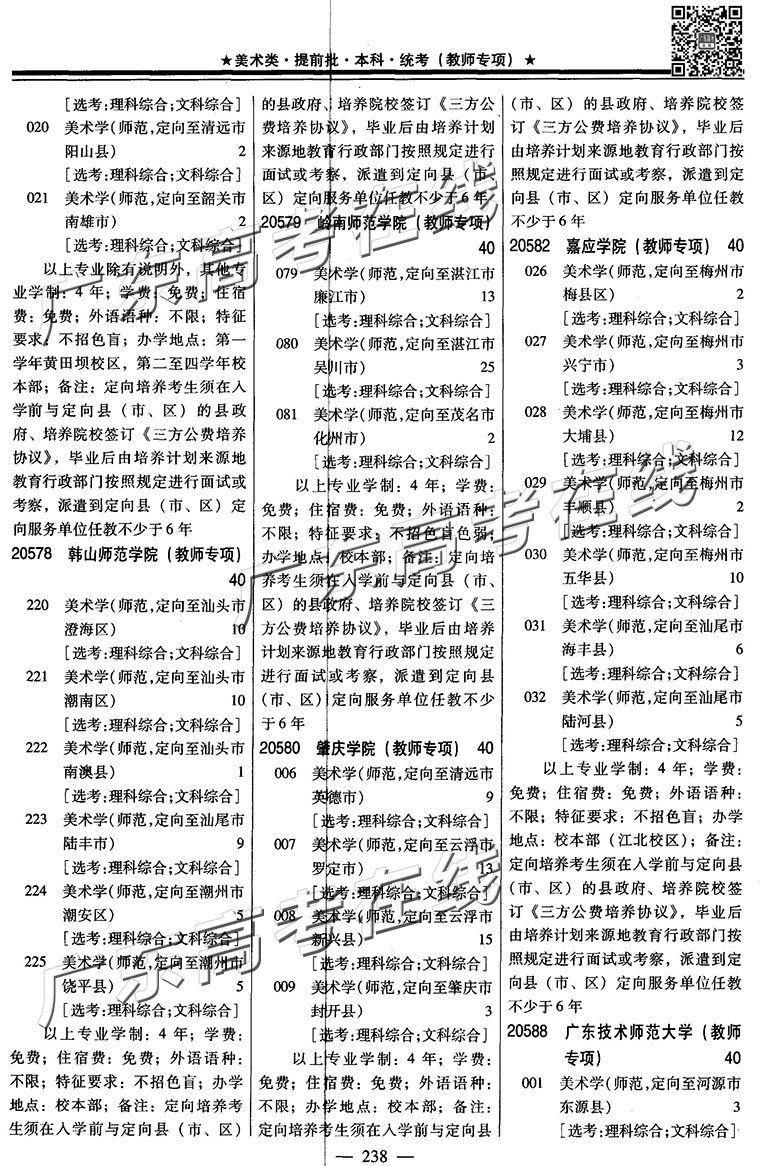 ★美术类·提前批·本科·统考(教师专项)★
[选考:理科综合;文科综合]
020 美术学(师范,定向至清远市
阳山县) 2
[选考:理科综合;文科综合]
021 美术学(师范,定向至韶关市
南雄市) 2
[选考:理科综合;文科综合]
以上专业除有说明外,其他专
业学制:4年;学费:免费;住宿
费:免费;外语语种:不限;特征
要求:不招色盲;办学地点:第一
学年黄田坝校区,第二至四学年校
本部;备注:定向培养考生须在入
学前与定向县(市、区)的县政
府、培养院校签订《三方公费培养
协议》,毕业后由培养计划来源地
教育行政部门按照规定进行面试或
考察,派遣到定向县(市、区)定
向服务单位任教不少于6年
20578 韩山师范学院(教师专项)
40
220 美术学(师范,定向至汕头市
澄海区) 10
[选考:理科综合;文科综合]
221 美术学(师范,定向至汕头市
潮南区) 10
[选考:理科综合;文科综合]
222 美术学(师范,定向至汕头市
南澳县) 1
[选考:理科综合;文科综合]
223 美术学(师范,定向至汕尾市
陆丰市) 9
[选考:理科综合;文科综合]
224 美术学(师范,定向至潮州市
潮安区) 5
[选考:理科综合;文科综合]
225 美术学(师范,定向至潮州市
饶平县) 5
[选考:理科综合;文科综合]
以上专业学制:4年;学费:
免费;住宿费:免费;外语语种:
不限;特征要求:不招色盲;办学
地点:校本部;备注:定向培养考
生须在入学前与定向县(市、区)
的县政府、培养院校签订《三方公
费培养协议》,毕业后由培养计划
来源地教育行政部门按照规定进行
面试或考察,派遣到定向县(市、
区)定向服务单位任教不少于6年
20579 岭南师范学院(教师专项)
40
079 美术学(师范,定向至湛江市
廉江市) 13
[选考:理科综合;文科综合]
080 美术学(师范,定向至湛江市
吴川市) 25
[选考:理科综合;文科综合]
081 美术学(师范,定向至茂名市
化州市) 2
[选考:理科综合;文科综合]
以上专业学制:4年;学费:
免费;住宿费:免费;外语语种:
不限;特征要求:不招色盲色弱;
办学地点:校本部;备注:定向培
养考生须在入学前与定向县(市、
区)的县政府、培养院校签订《三
方公费培养协议》,毕业后由培养
计划来源地教育行政部门按照规定
进行面试或考察,派遣到定向县
(市、区)定向服务单位任教不少
于6年
20580 肇庆学院(教师专项) 40
006 美术学(师范,定向至清远市
英德市) 9
[选考:理科综合;文科综合]
007 美术学(师范,定向至云浮市
罗定市) 13
[选考:理科综合;文科综合]
008 美术学(师范,定向至云浮市
新兴县) 15
[选考:理科综合;文科综合]
009 美术学(师范,定向至肇庆市
封开县) 3
[选考:理科综合;文科综合]
以上专业学制:4年;学费:
免费;住宿费:免费;外语语种:
不限;特征要求:不招色盲;办学
地点:校本部;备注:定向培养考
生须在入学前与定向县
(市、区)的县政府、培养院校签
订《三方公费培养协议》,毕业后
由培养计划来源地教育行政部门按
照规定进行面试或考察,派遣到定
向县(市、区)定向服务单位任教
不少于6年
20582 嘉应学院(教师专项) 40
026 美术学(师范,定向至梅州市
梅县区) 2
[选考:理科综合;文科综合]
027 美术学(师范,定向至梅州市
兴宁市) 3
[选考:理科综合;文科综合]
028 美术学(师范,定向至梅州市
大埔县) 12
[选考:理科综合;文科综合]
029 美术学(师范,定向至梅州市
丰顺县) 2
[选考:理科综合;文科综合]
030 美术学(师范,定向至梅州市
五华县) 10
[选考:理科综合;文科综合]
031 美术学(师范,定向至汕尾市
海丰县) 6
[选考:理科综合;文科综合]
032 美术学(师范,定向至汕尾市
陆河县) 5
[选考:理科综合;文科综合]
以上专业学制:4年;学费:
免费;住宿费:免费;外语语种:
不限;特征要求:不招色盲;办学
地点:校本部(江北校区);备注:
定向培养考生须在入学前与定向县
(市、区)的县政府、培养院校签
订《三方公费培养协议》,毕业后
由培养计划来源地教育行政部门按
照规定进行面试或考察,派遣到定
向县(市、区)定向服务单位任教
不少于6年
20588 广东技术师范大学(教师
专项) 40
001 美术学(师范,定向至河源市
东源县) 3
[选考:理科综合;文科综合]
— 238 —
广东高考在线
广东高考在线
广东高考在线